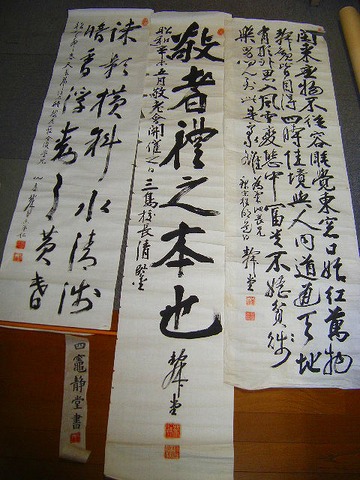 閑来無事不従容睡覺東窓日始紅萬物
静観皆自得四時佳境與人同道通天地
有形外思入風雲變態中富貴不婬貧賤
樂男児到此是豪雄
静堂
敬者禮之本也
昭和辛未五月敬老会開催之日 三篤校長清鑒
静堂
疎影横斜水清浅
暗香浮動月黄昏
四竈静堂書